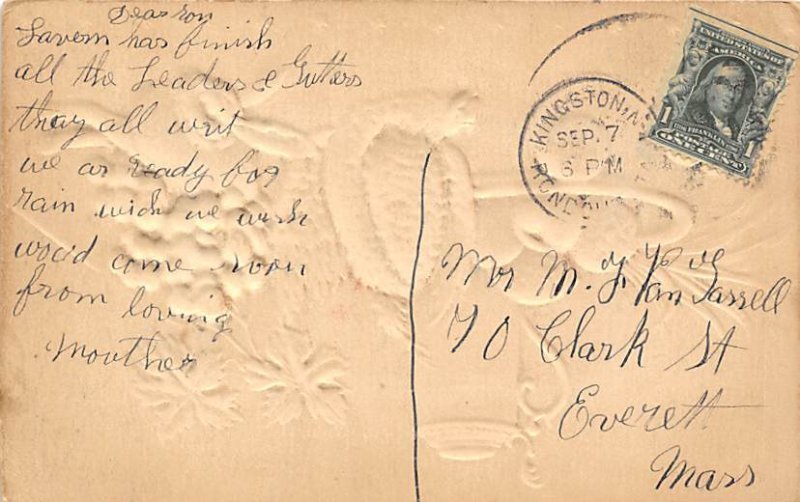 Dear son
Lavern has finish
all the Leaders & Gutters
thay all writ
we ar ready for
rain wich we wish
wod come soon
from loving
Mouther
KINGSTON, N
SEP. 7
6 PM
RONDOUT
UNITED STATES OF
AMERICA
FRANKLIN
1 1
ONE CENT
Mr M. F. Van Tassell
70 Clark St
Everett
Mass